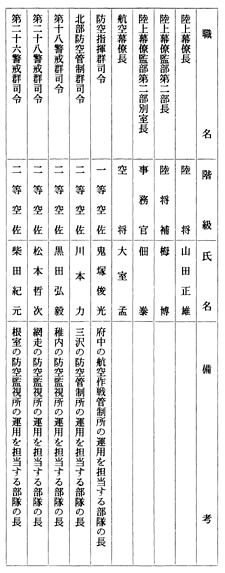 職名 階級 氏名 備考
陸上幕僚長 陸将 山田正雄
陸上幕僚監部第二部長 陸将補 栂博
陸上幕僚監部第二部別室長 事務官 佃泰
航空幕僚長 空将 大室孟
防空指揮群司令 一等空佐 鬼塚俊光 府中の航空作戦管制所の運用を担当する部隊の長
北部防空管制群司令 二等空佐 川本力 三沢の防空管制所の運用を担当する部隊の長
第十八警戒群司令 二等空佐 黒田弘毅 稚内の防空監視所の運用を担当する部隊の長
第二十八警戒群司令 二等空佐 松本哲次 網走の防空監視所の運用を担当する部隊の長
第二十六警戒群司令 二等空佐 柴田紀元 根室の防空監視所の運用を担当する部隊の長